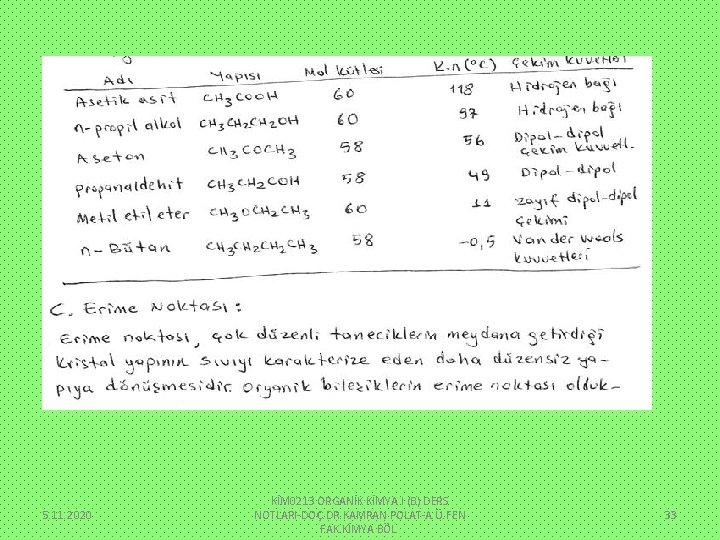 Adı Yapısı Mol kütlesi K.n(°C) Çekim Kuvvetleri
Asetik asit CH3COOH 60 118 Hidrojen bağı
n-propil alkol CH3CH2CH2OH 60 97 Hidrojen bağı
Aseton CH3COCH3 58 56 Dipol-dipol
çekim kuvvetl.
propanaldehit CH3CH2COH 58 49 Dipol-dipol
Metil etil eter CH3OCH2CH3 60 11 zayıf dipol-dipol
çekimi
n-Bütan CH3CH2CH2CH3 58 -0,5 Van der Waals
kuvvetleri
C. Erime Noktası:
Erime noktası, çok düzenli taneciklerin meydana getirdiği
kristal yapının sıvıyı karakterize eden daha düzensiz ya-
pıya dönüşmesidir. Organik bileşiklerin erime noktası olduk-
5.11.2020
KİM0213 ORGANİK KİMYA I (B) DERS
NOTLARI-DOÇ.DR.KAMRAN POLAT-A.Ü.FEN
FAK.KİMYA BÖL
33